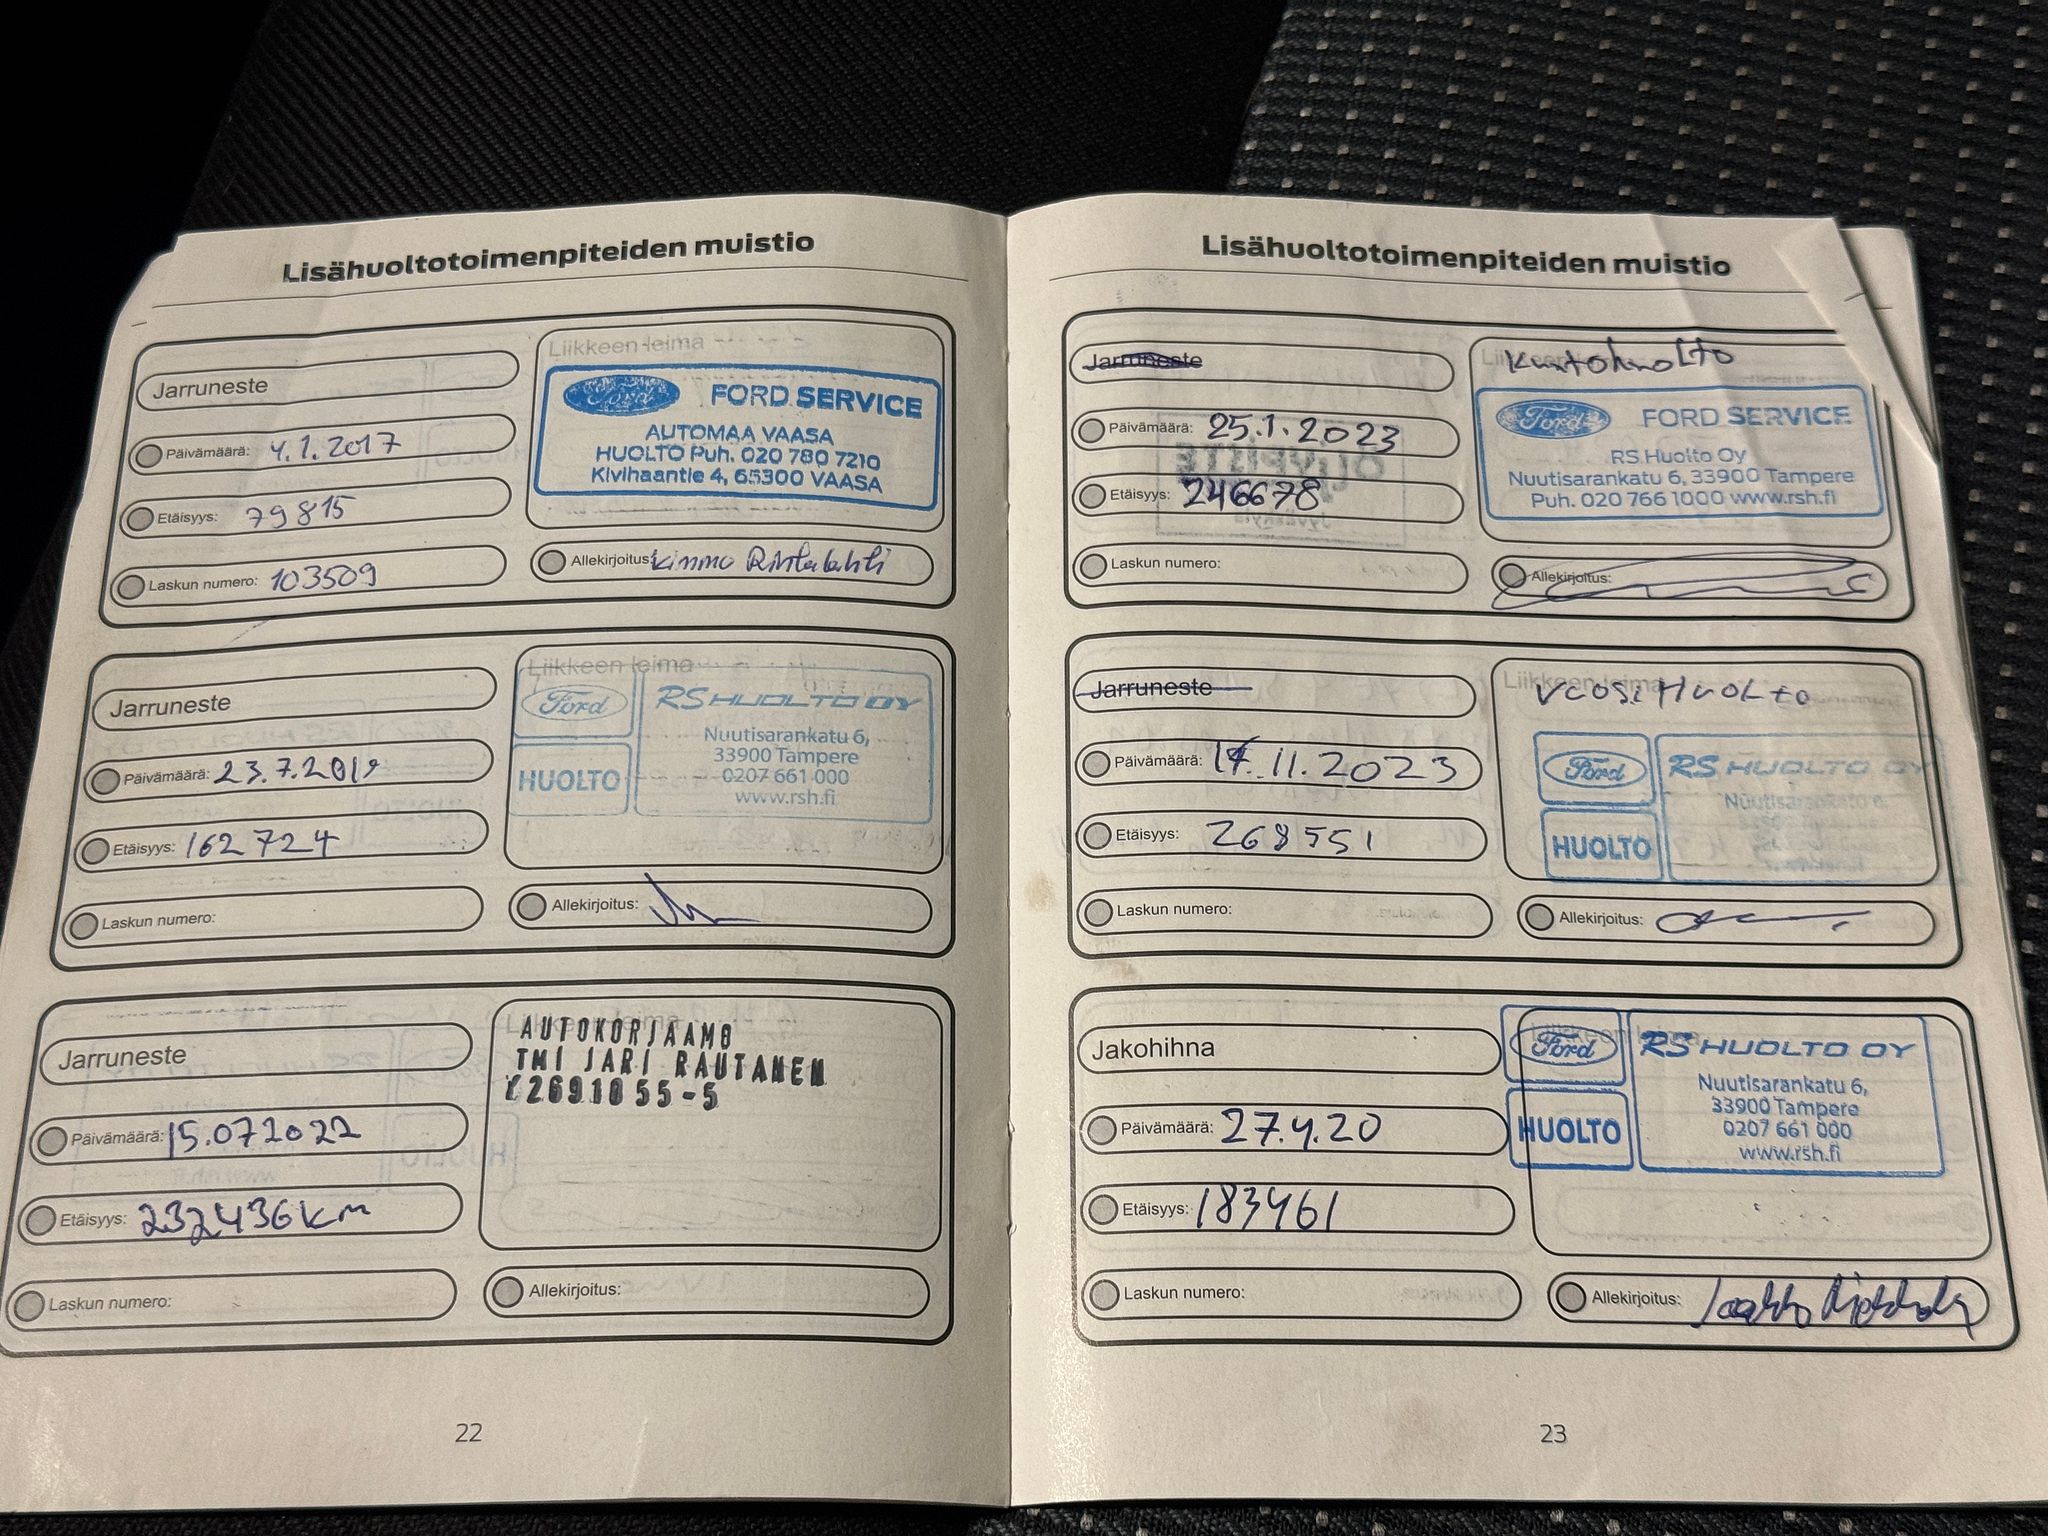 Lisähuoltotoimenpiteiden muistio
Jarruneste
Päivämäärä: 4.1.2017
Etäisyys: 79815
Laskun numero: 103509
Liikkeen leima
Ford FORD SERVICE
AUTOMAA VAASA
HUOLTO Puh. 020 780 7210
Kivihaantie 4, 65300 VAASA
Allekirjoitus: Kimmo Rintalahti
Jarruneste
Päivämäärä: 23.7.2019
Etäisyys: 162724
Laskun numero:
Liikkeen leima
Ford RS HUOLTO OY
HUOLTO
Nuutisarankatu 6,
33900 Tampere
0207 661 000
www.rsh.fi
Allekirjoitus:
Jarruneste
Päivämäärä: 15.072022
Etäisyys: 232436km
Laskun numero:
Liikkeen leima
AUTOKORJAAMO
TMI JARI RAUTANEN
Y2691055-5
Allekirjoitus:
22
Lisähuoltotoimenpiteiden muistio
Jarruneste
Päivämäärä: 25.1.2023
Etäisyys: 246678
Laskun numero:
Kuntohuolto
Ford FORD SERVICE
RS Huolto Oy
Nuutisarankatu 6, 33900 Tampere
Puh. 020 766 1000 www.rsh.fi
Allekirjoitus:
Jarruneste
Päivämäärä: 17.11.2023
Etäisyys: 268551
Laskun numero:
Liikkeen leima
VUOSIHUOLTO
Ford RS HUOLTO OY
HUOLTO
Nuutisarankatu 6,
Allekirjoitus:
Jakohihna
Päivämäärä: 27.4.20
Etäisyys: 183461
Laskun numero:
Liikkeen leima
Ford RS HUOLTO OY
HUOLTO
Nuutisarankatu 6,
33900 Tampere
0207 661 000
www.rsh.fi
Allekirjoitus:
23